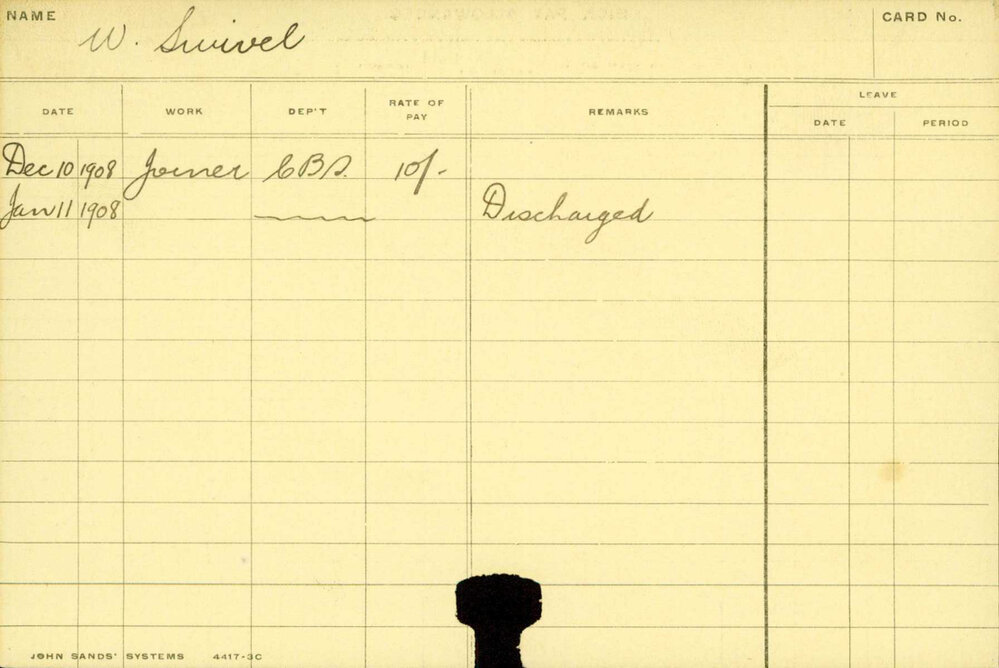 NAME
W. Swivel
CARD No.
DATE WORK DEP'T RATE OF PAY REMARKS LEAVE
DATE PERIOD
Dec 10 1908 Joiner CBS 10/-
Jan 11 1908 Discharged
JOHN SANDS' SYSTEMS 4417-3C